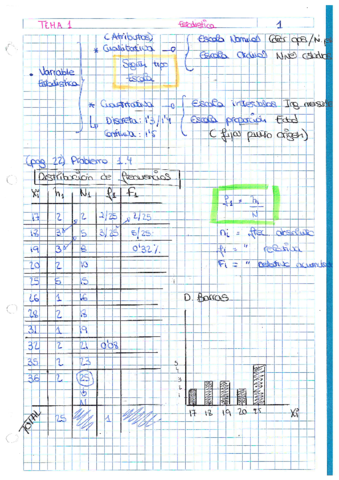 TEMA 1 Estadística 1
(Atributos)
* Cualitativa
Según tipo Escala
Escala Nominal
Escala Ordinal Nivel estudios
• Variable Estadística
* Cuantitativa
Discreta:
Continua: 1'5
Escala intervalos Ing. mensual
Escala proporción Edad
(Fijar punto origen)
(pag. 22) Problema 1.4
Distribución de frecuencias
Xi ni Ni fi Fi
17 2 2 2/25 2/25
18 3 5 3/25 5/25
19 3 8 0'32%
20 2 10
25 5 15
26 1 16
28 2 18
31 1 19
32 2 21 0'08
35 2 23
36 2 25
N
TOTAL 25 1
fi = ni / N
ni = frec. absoluta
fi = " relativa
Fi = " relativa acumulada
D. Barras
5
4
3
2
1
17 18 19 20 25 Xi